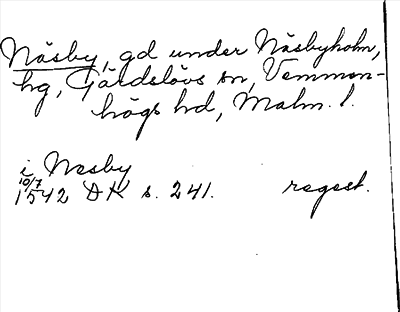 Näsby, gd under Näsbyholm,
hg, Gärdslövs sn, Vemmen-
högs hd, Malm. l.
i Nesby
10/7
1542 DK s. 241. regest.